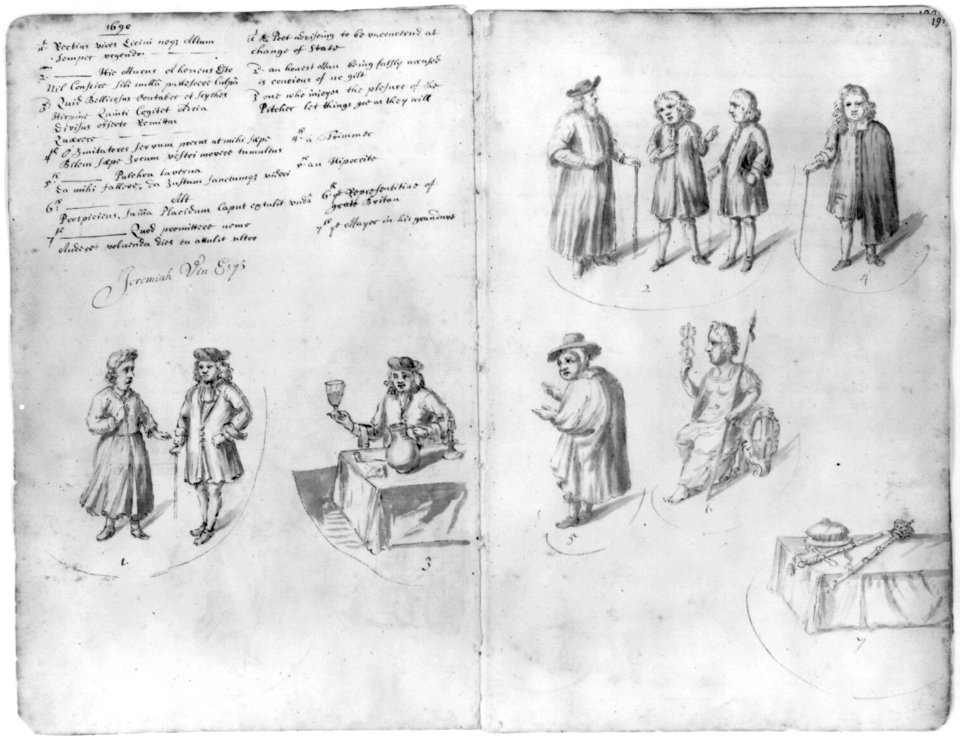 1690
1st Rectius vives Licini neq; Altum
Semper vrgendo
2 Hic Murus Aheneus Esto
Nil Conscire sibi nulla pallescere culpa
3 Quid Bellicosus Cantaber et Scythes
Hirpine Quinti Cogitet Adria
Divisus objecto Remittas
Quærere
4th O Imitatores servum pecus ut mihi sæpe
Bilem sæpe Jocum vestri movere tumultus
5th Pulchra Laverna
Da mihi fallere, da Justum sanctumq; videri
6th Alt
Prospiciens, suma Placidum caput extulit unda
7th Quod promittere nemo
Auderet volvenda dies en attulit ultro
1st A Poet advising to be unconcernd at
change of State
2d an honest Man being falsly accused
is concious of no gilt
3 one who injoyes the plesure of the
Pitcher let things goe as they will
4th a Trimmer
5th an Hipocrite
6th ye Representitive of
great Britan
7th ye Mayor in his grandure
Jeremiah Vin Esqr
191
1
2
3
4
5
6
7